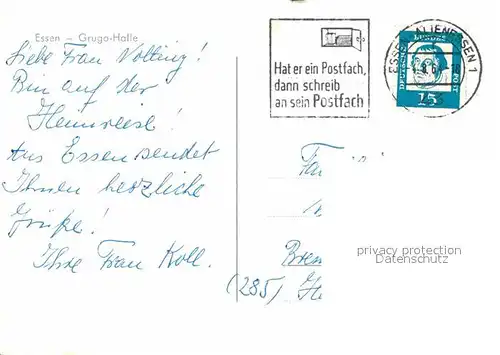 Essen – Gruga-Halle
Liebe Frau Volting!
Bin auf der
Heimreise!
Aus Essen sendet
Ihnen herzliche
Grüße!
Ihre Frau Koll.
Hat er ein Postfach,
dann schreib
an sein Postfach
ESSEN-ALTENESSEN 1
DEUTSCHE BUNDESPOST
15
Bre
(285)
privacy protection
Datenschutz